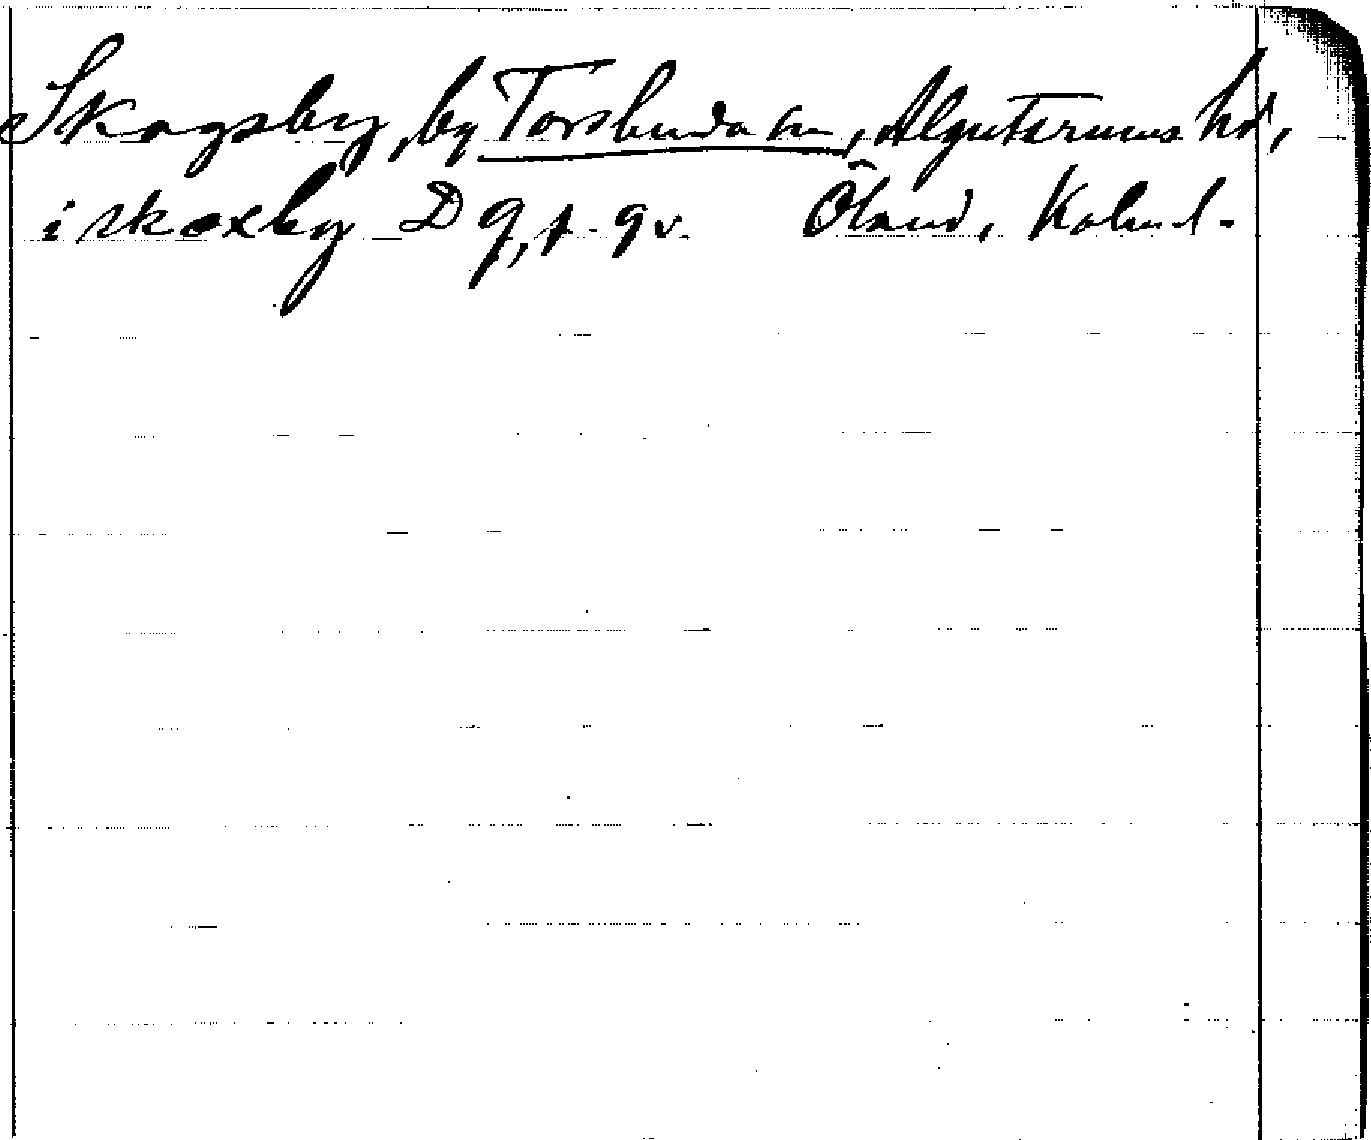 Skogsby, by Torslunda sn, Algutsrums hd,
i skoxby D 9, p. 9 v. Öland, Kalm.l.